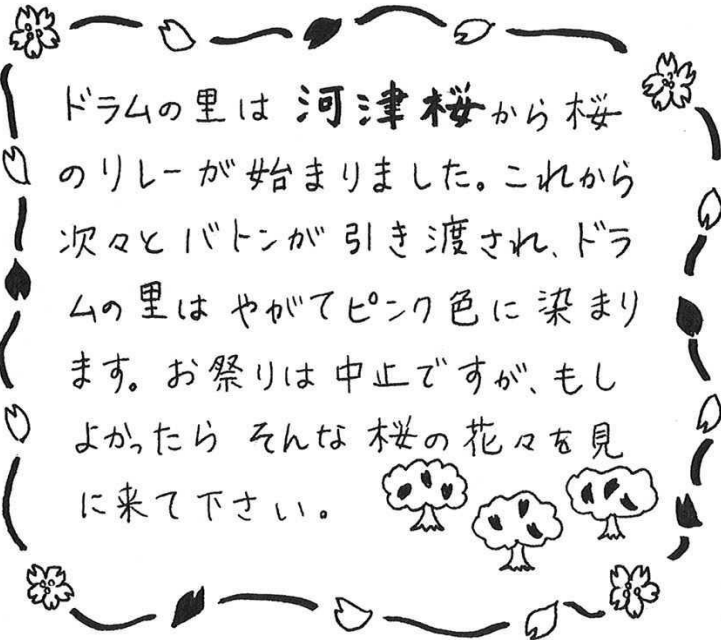 ドラムの里は河津桜から桜
のリレーが始まりました。これから
次々とバトンが引き渡され、ドラ
ムの里はやがてピンク色に染まり
ます。お祭りは中止ですが、もし
よかったらそんな桜の花々を見
に来て下さい。